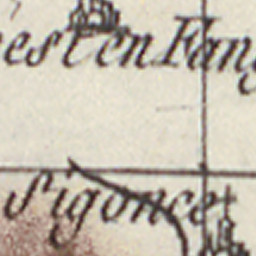 est en Fang
Sigonce